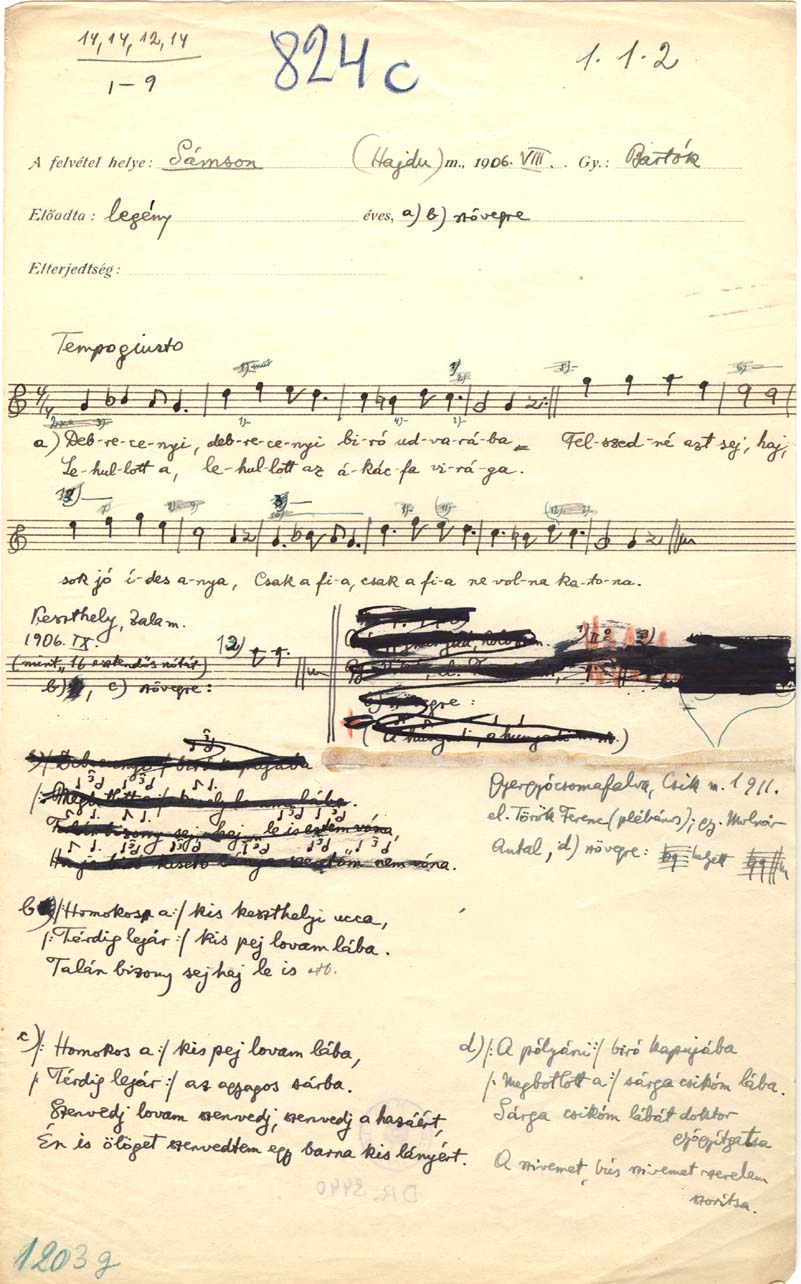 14, 14, 12, 14
1–9
824c
1. 1. 2
A felvétel helye: Sámson (Hajdu) m., 1906. VIII. Gy.: Bartók
Előadta: legény éves, a) b) szövegre
Elterjedtség:
Tempo giusto
a) Deb-re-ce-nyi, deb-re-ce-nyi bi-ró ud-va-rá-ba Fel-szed-né azt sej, haj,
Le-hul-lott a, le-hul-lott az á-kác-fa vi-rá-ga.
sok jó í-des a-nya, Csak a fi-a, csak a fi-a ne vol-na ka-to-na.
Keszthely, Zala m.
1906. IX.
(mint „16 esztendős nótát)
b), c) szövegre:
Gyergyócsomafalva, Csik m. 1911.
el. Török Ferenc (plébános); gy. Molnár
Antal, d) szövegre: helyett
b) /: Homokos a :/ kis keszthelyi ucca,
/: Térdig lejár :/ kis pej lovam lába.
Talán bizony sej haj le is stb.
c) /: Homokos a :/ kis pej lovam lába,
/: Térdig lejár :/ az agyagos sárba.
Szenvedj lovam szenvedj, szenvedj a hazáért,
Én is ölöget szenvedtem egy barna kis lányért.
d) /: A pólyáni :/ biró kapujába
/: Megbotlott a :/ sárga csikóm lába.
Sárga csikóm lábát doktor
gyógyítgatsa
A szivemet, bús szivemet szerelem
szorítsa.
DR. 2440
1203g